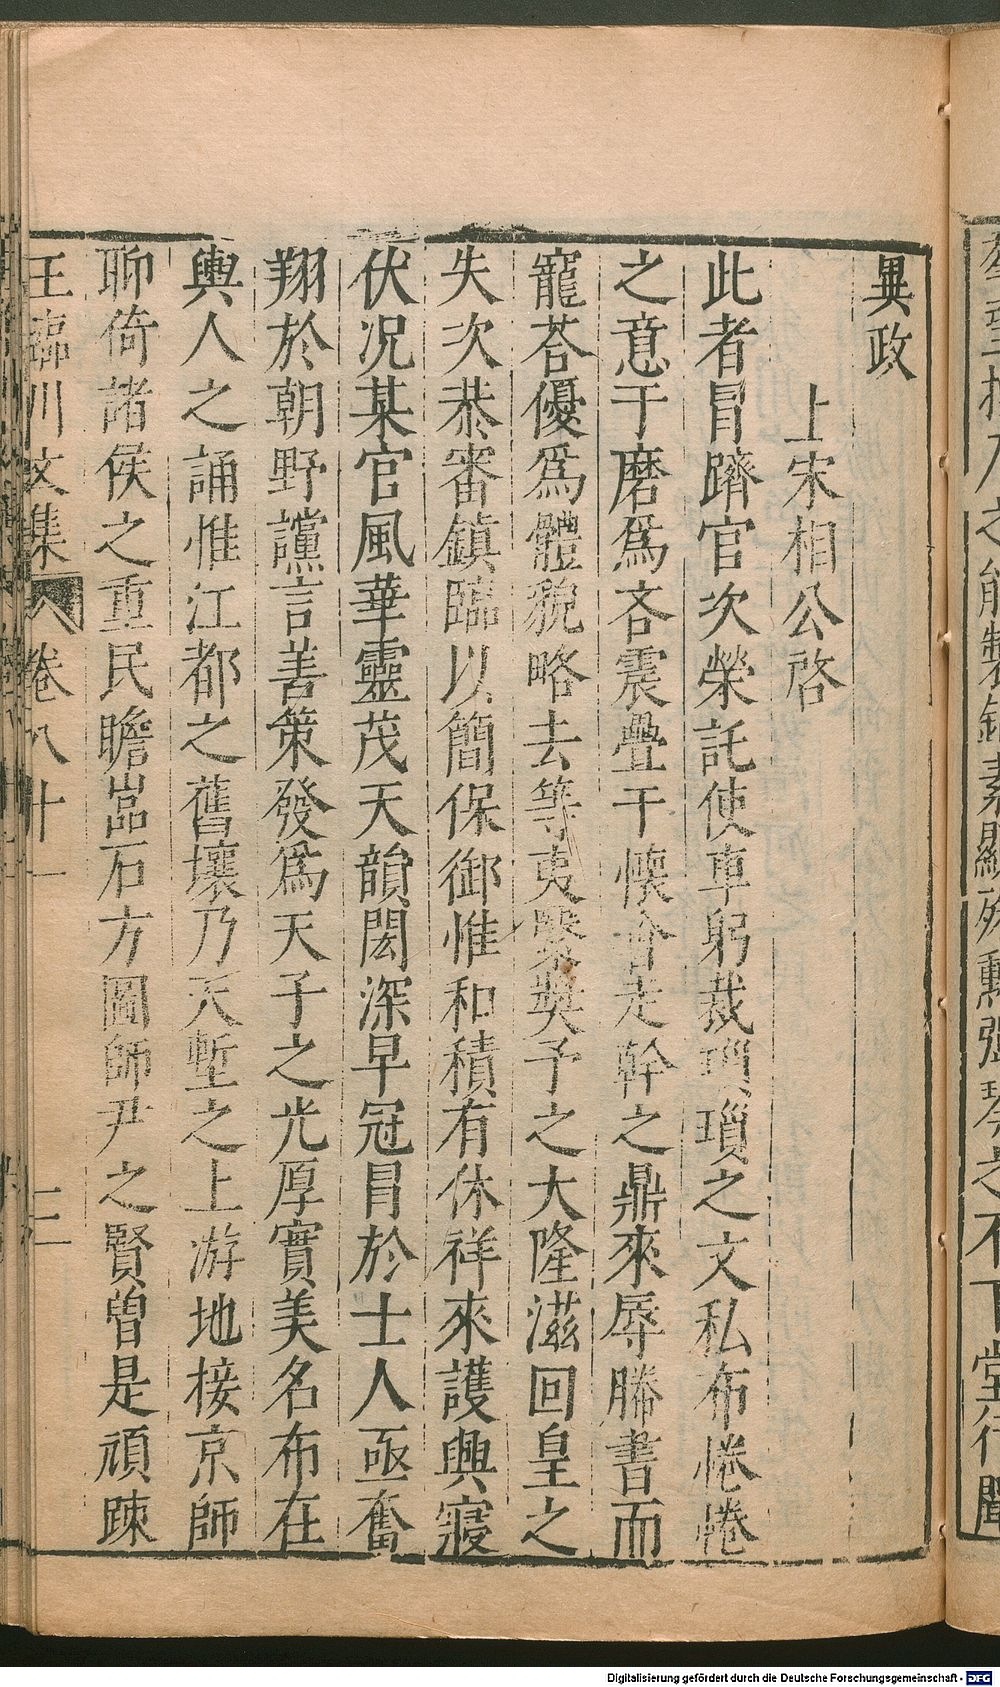 異政
上宋相公啓
此者冒躋官次榮託使車躬裁瑣瑣之文私布惓惓
之意干磨爲吝震疊干懷畬走幹之鼎來辱牓書而
寵荅優爲體貌略去等夷繄奨予之大隆滋回皇之
失次恭審鎮臨以簡保御惟和積有休祥來護興寢
伏况某官風華靈茂天韻閎深早冠冐於士人亟奮
翔於朝野讜言善策發爲天子之光厚實美名布在
輿人之誦惟江都之舊壤乃天塹之上游地接京師
聊倚諸侯之重民瞻嵓石方圖師尹之賢曽是頑踈
王臨川文集 卷八十一 三
之不下堂行聞
Digitalisierung gefördert durch die Deutsche Forschungsgemeinschaft - DFG